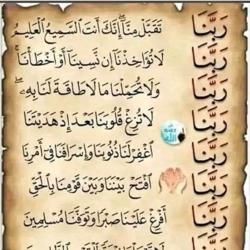 رَبَّنَا تَقَبَّلْ مِنَّا إِنَّكَ أَنتَ السَّمِيعُ الْعَلِيمُ
رَبَّنَا لَا تُؤَاخِذْنَا إِن نَّسِينَا أَوْ أَخْطَأْنَا
رَبَّنَا وَلَا تُحَمِّلْنَا مَا لَا طَاقَةَ لَنَا بِهِ
رَبَّنَا لَا تُزِغْ قُلُوبَنَا بَعْدَ إِذْ هَدَيْتَنَا
رَبَّنَا اغْفِرْ لَنَا ذُنُوبَنَا وَإِسْرَافَنَا فِي أَمْرِنَا
رَبَّنَا افْتَحْ بَيْنَنَا وَبَيْنَ قَوْمِنَا بِالْحَقِّ
رَبَّنَا أَفْرِغْ عَلَيْنَا صَبْرًا وَتَوَفَّنَا مُسْلِمِينَ
رَبَّنَا